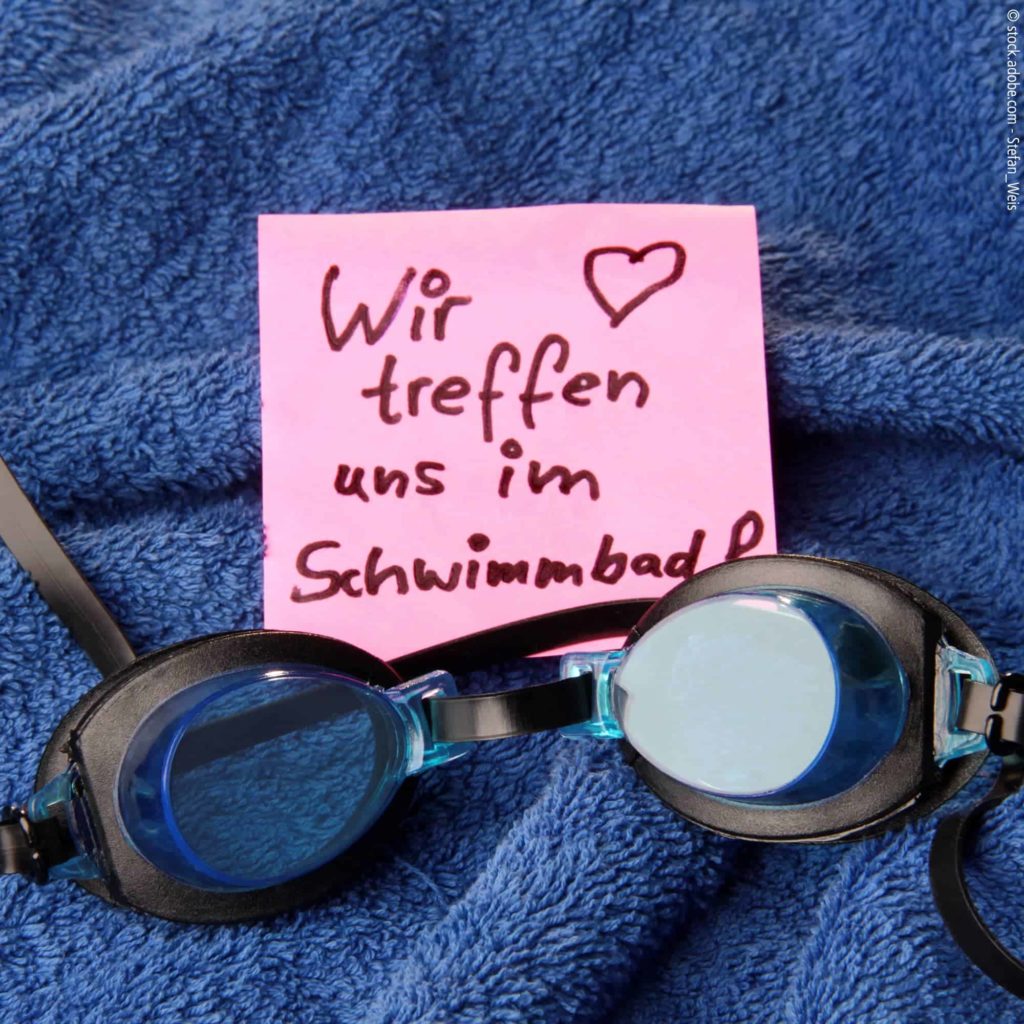 Wir
treffen
uns im
Schwimmbad
© stock.adobe.com - Stefan_Weis